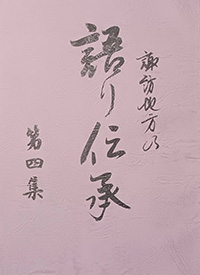 諏訪地方の
語り伝承
第四集